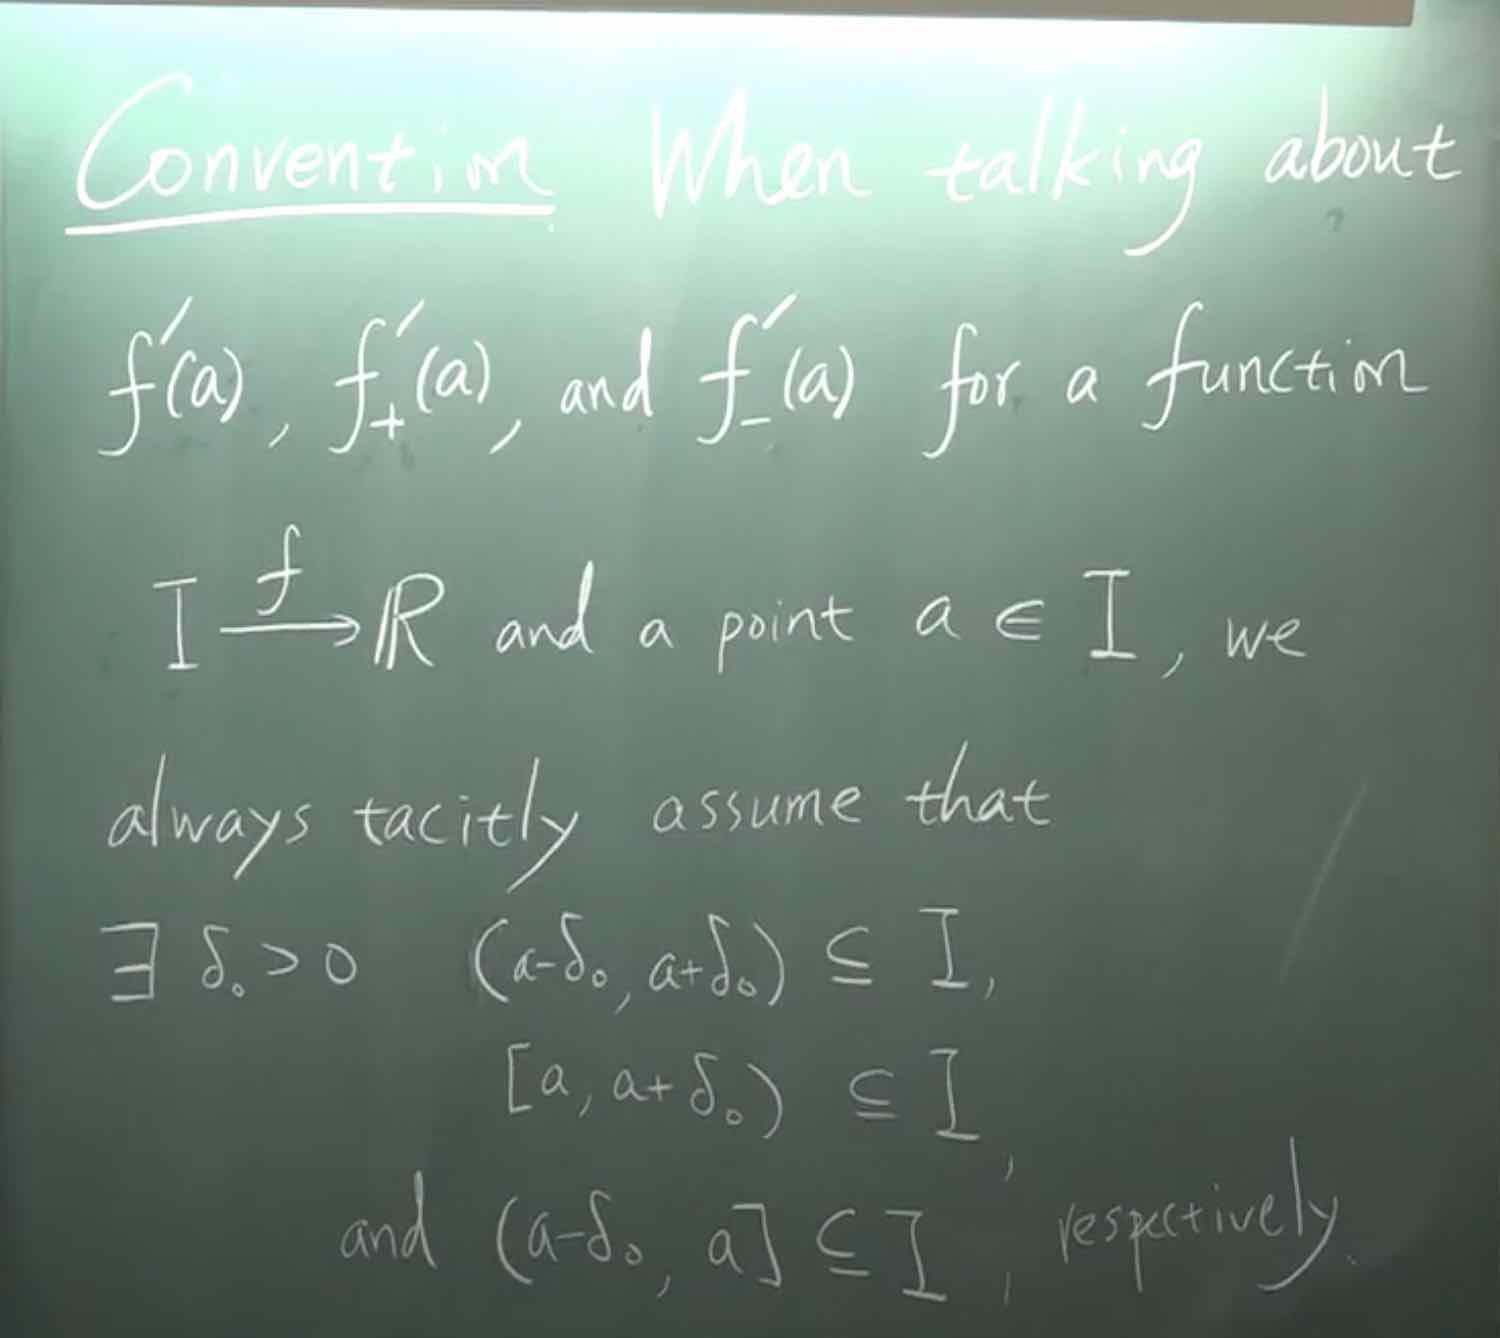 Convention When talking about
f'(a), f₊'(a), and f₋'(a) for a function
I →^f ℝ and a point a ∈ I, we
always tacitly assume that
∃ δ₀ > 0 (a-δ₀, a+δ₀) ⊆ I,
[a, a+δ₀) ⊆ I,
and (a-δ₀, a] ⊆ I, respectively.